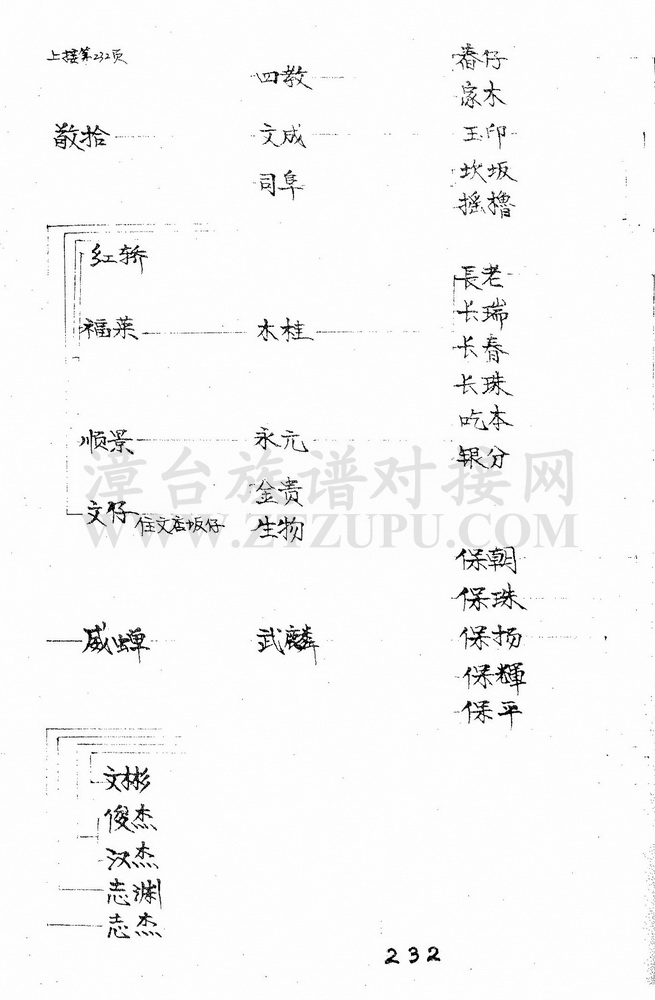 上接第232页
四教
番仔
家木
敬拾
文成
玉印
司阜
坎坂
摇橹
红轿
長老
福莱
木桂
长瑞
长春
长珠
吃本
顺景
永元
银分
金贵
文仔 住文店坂仔
生物
漳台族谱对接网
WWW.ZTZUPU.COM
保朝
保珠
威蝉
武麟
保扬
保輝
保平
文彬
俊杰
汉杰
志渊
志杰
232